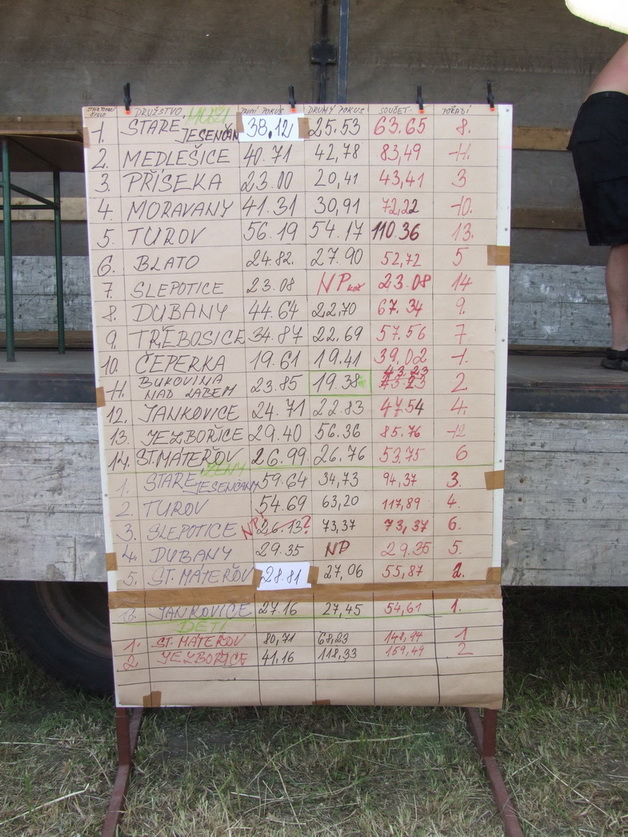 DRUŽSTVO MUŽI PRVNÍ POKUS DRUHÝ POKUS SOUČET POŘADÍ
1. STARÉ JESENČANY 38,12 25.53 63.65 8.
2. MEDLEŠICE 40.71 42,78 83,49 11.
3. PŘÍSEKA 23.00 20,41 43,41 3
4. MORAVANY 41.31 30,91 72,22 10.
5. TUROV 56.19 54.17 110.36 13.
6. BLATO 24.82. 27.90 52,72 5
7. SLEPOTICE 23.08 NP 23.08 14
8. DUBANY 44.64 22,70 67.34 9.
9. TŘEBOSICE 34.87 22.69 57.56 7
10. ČEPERKA 19.61 19.41 39,02 1.
11. BUKOVINA NAD LABEM 23.85 19.38 43.23 2
12. JANKOVICE 24.71 22.83 47.54 4.
13. JEZBOŘICE 29.40 56.36 85.76 12
14. ST. MATEŘOV 26.99 26.76 53,75 6
ŽENY
1. STARÉ JESENČANY 59.64 34,73 94,37 3.
2. TUROV 54.69 63,20 117,89 4.
3. SLEPOTICE NP 26.13? 73,37 73,37 6.
4. DUBANY 29.35 NP 29.35 5.
5. ST. MATEŘOV 28.81 27,06 55,87 2.
JANKOVICE 27.16 27,45 54,61 1.
DĚTI
1. ST. MATEŘOV 80,71 68,23 148,94 1
2. JEZBOŘICE 41,16 118,33 159,49 2